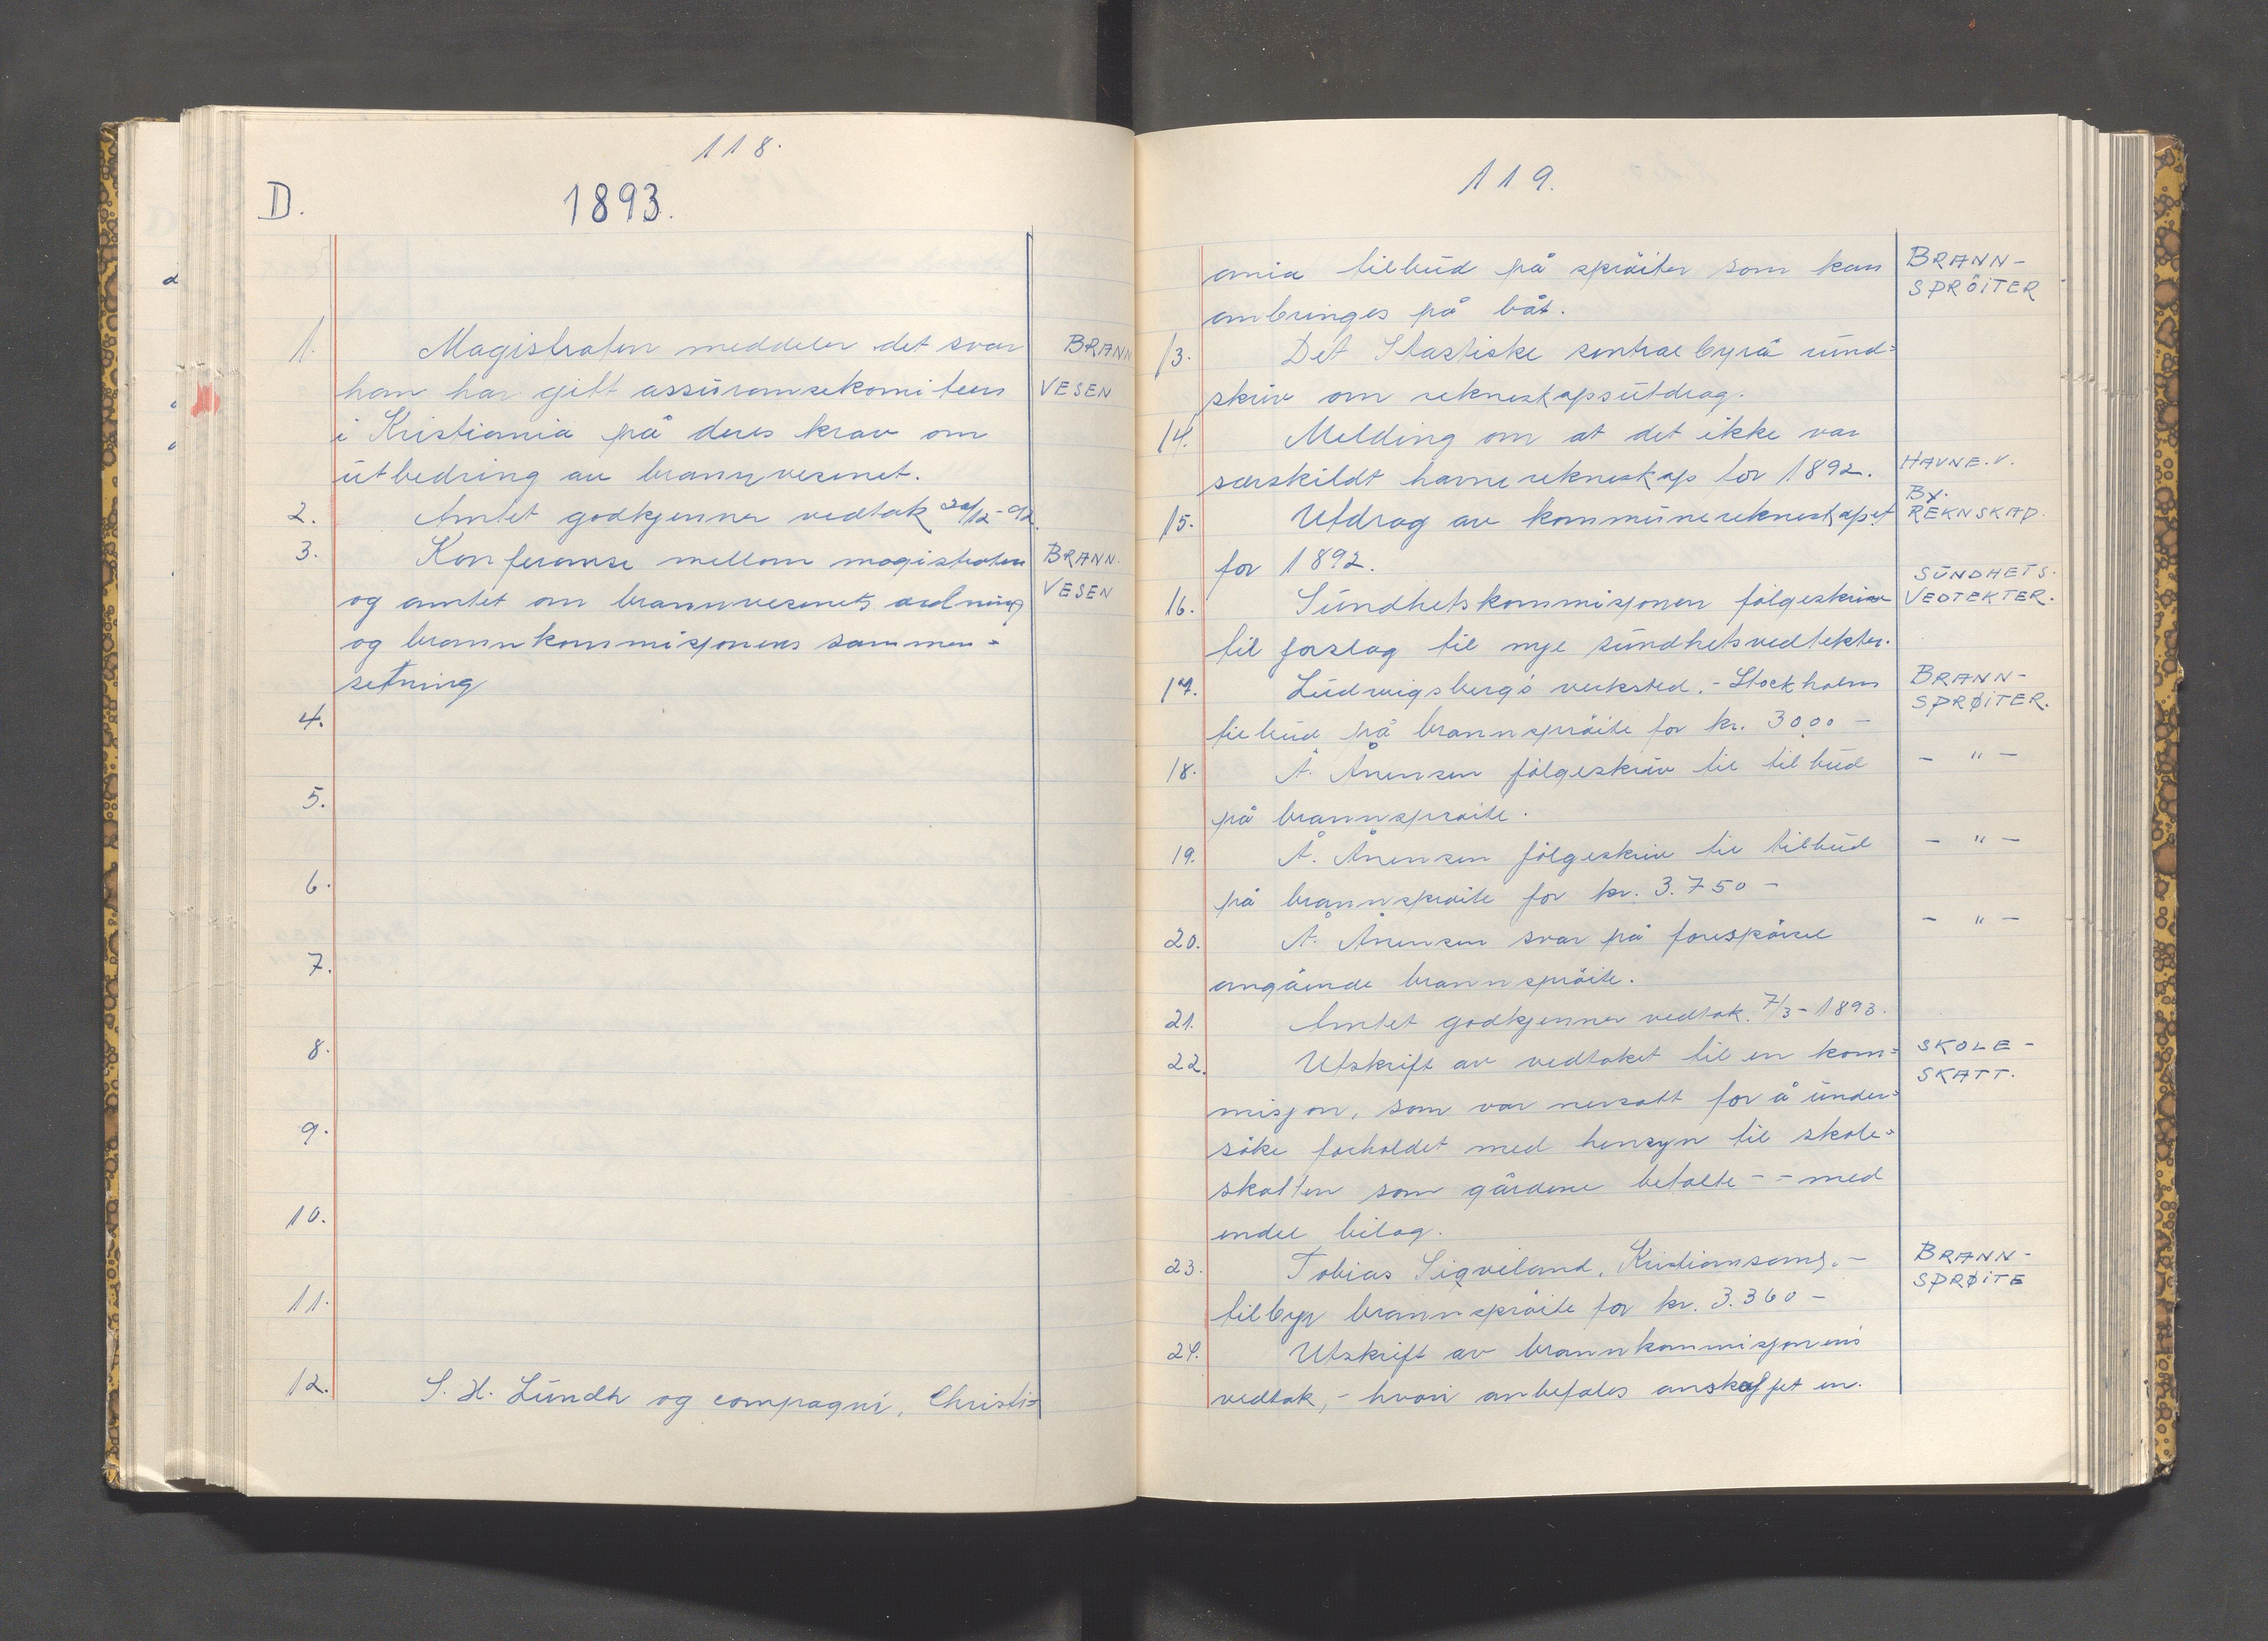 118.
D. 1893.
1. Magistraten meddeler det svar BRANN
han har gitt assūransekomiteen VESEN
i Kristiania på deres krav om
ūtbedring av brannvesenet.
2. Amtet godkjenner vedtak
3. Konferanse mellom magistraten BRANN.
og amtet om brannvesenets ordning VESEN
og brannkommisjonens sammen=
setning
4.
5.
6.
7.
8.
9.
10.
11.
12. S. H. Lūndh og compagni, Christi=
119.
ania tilbūd på spröiter som kan BRANN-
anbringes på båt. SPRÖITER
13. Det Stastiske sentralbyrå rūnd=
skriv om reknskapsūtdrag.
14. Melding om at det ikke var
særskildt havnereknskap for 1892. HAVNE.V.
15. Utdrag av kommūnereknskapet BY. REKNSKAP.
for 1892.
16. Sūndhetskommisjonen fölgeskriv SŪNDHETS-
til forslag til nye sūndhetsvedtekter. VEDTEKTER.
17. Lūdwigsbergs verksted. - Stockholm BRANN-
tilbūd på brannspröite for kr. 3000 - SPRØITER.
18. A. Ånensen fölgeskriv til tilbūd - " -
på brannspröite.
19. Å. Ånensen fölgeskriv til tilbūd - " -
på brannspröite for kr. 3.750 -
20. A. Ånensen svar på forespörsel - " -
angående brannspröite.
21. Amtet godkjenner vedtak. 7/3 - 1893.
22. Utskrift av vedtaket til en kom= SKOLE-
misjon, som var nersatt for å ūnder= SKATT.
söke forholdet med hensyn til skole=
skatten som gårdene betalte - - med
endel bilag.
23. Tobias Sigveland, Kristiansand. - BRANN-
tilbyr brannspröite for kr. 3.360 - SPRØITE
24. Utskrift av brannkommisjonens
vedtak, - hvori anbefales anskaffet en.